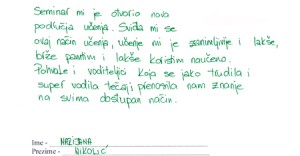 Seminar mi je otvorio nova
područja učenja. Sviđa mi se
ovaj način učenja, učenje mi je zanimljivije i lakše,
brže pamtim i lakše koristim naučeno.
Pohvale i voditeljici koja se jako trudila i
super vodila tečaj, prenosila nam znanje
na svima dostupan način.
Ime - NAZIJANA
Prezime - NIKOLIĆ